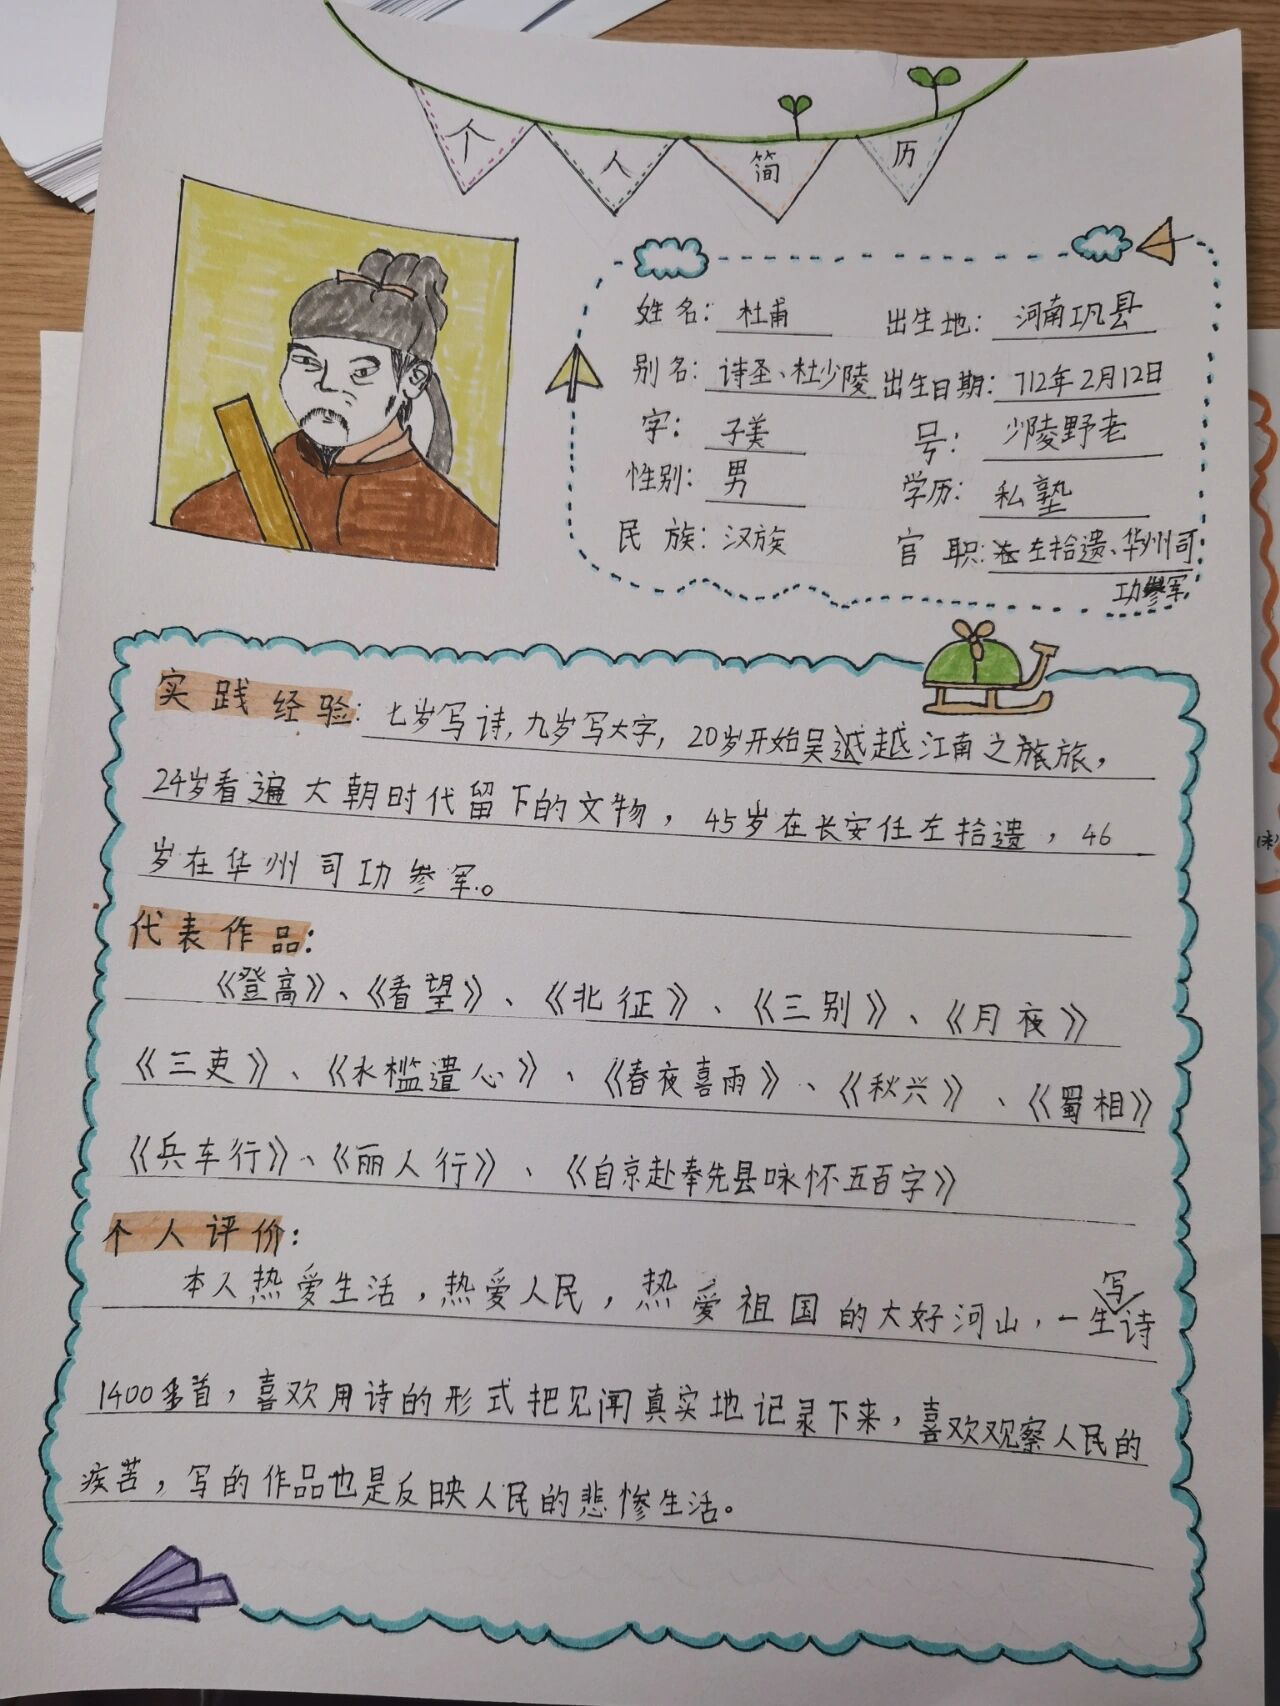 个人简历
姓名: 杜甫 出生地: 河南巩县
别名: 诗圣、杜少陵 出生日期: 712年2月12日
字: 子美 号: 少陵野老
性别: 男 学历: 私塾
民族: 汉族 官职: 左拾遗、华州司
功参军
实践经验: 七岁写诗, 九岁写大字, 20岁开始吴越越江南之旅旅,
24岁看遍大朝时代留下的文物, 45岁在长安任左拾遗, 46
岁在华州司功参军。
代表作品:
《登高》、《看望》、《北征》、《三别》、《月夜》
《三吏》、《水槛遣心》、《春夜喜雨》、《秋兴》、《蜀相》
《兵车行》、《丽人行》、《自京赴奉先县咏怀五百字》
个人评价:
本人热爱生活, 热爱人民, 热爱祖国的大好河山, 一生写诗
1400多首, 喜欢用诗的形式把见闻真实地记录下来, 喜欢观察人民的
疾苦, 写的作品也是反映人民的悲惨生活。